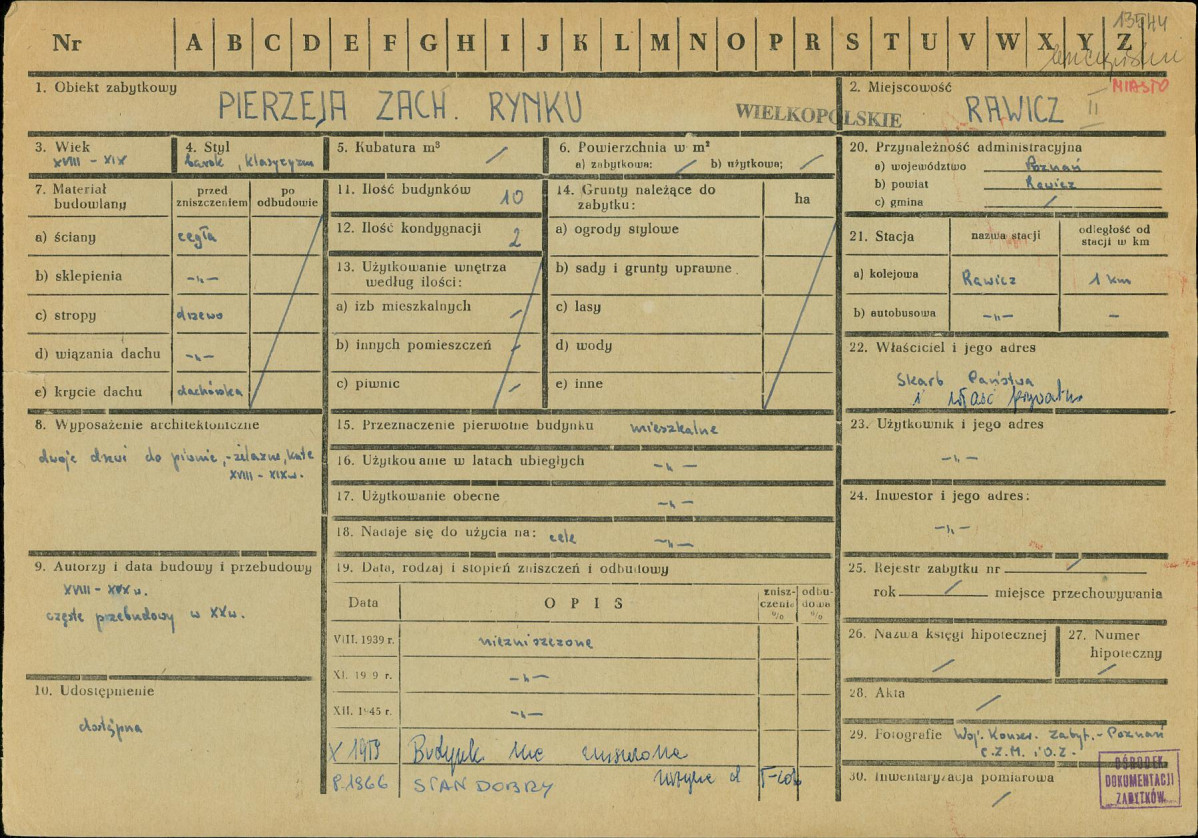 Nr A B C D E F G H I J K L M N O P R S T U V W X Y Z
1. Obiekt zabytkowy
PIERZEJA ZACH. RYNKU
WIELKOPOLSKIE
2. Miejscowość
MIASTO
RAWICZ II
3. Wiek
XVIII - XIX
4. Styl
barok, klasycyzm
5. Kubatura m³
/
6. Powierzchnia w m²
a) zabytkowa: / b) użytkowa; /
7. Materiał budowlany
przed zniszczeniem
po odbudowie
a) ściany cegła
b) sklepienia -"-
c) stropy drzewo
d) wiązania dachu -"-
e) krycie dachu dachówka
8. Wyposażenie architektoniczne
dwoje drzwi do piwnic, - żelazne, kute
XVIII - XIX w.
9. Autorzy i data budowy i przebudowy
XVIII - XIX w.
częste przebudowy w XX w.
10. Udostępnienie
dostępna
11. Ilość budynków 10
12. Ilość kondygnacji 2
13. Użytkowanie wnętrza
według ilości:
a) izb mieszkalnych /
b) innych pomieszczeń /
c) piwnic /
14. Grunty należące do
zabytku:
ha
a) ogrody stylowe
b) sady i grunty uprawne
c) lasy
d) wody
e) inne
15. Przeznaczenie pierwotne budynku mieszkalne
16. Użytkowanie w latach ubiegłych -"-
17. Użytkowanie obecne -"-
18. Nadaje się do użycia na: cele -"-
19. Data, rodzaj i stopień zniszczeń i odbudowy
Data
OPIS
znisz-czenia %
odbu-dowa %
VIII. 1939 r. niezniszczone
XI. 19 9 r. -"-
XII. 1945 r. -"-
X 1959 Budynek nie
P. 1966 STAN DOBRY
20. Przynależność administracyjna
a) województwo Poznań
b) powiat Rawicz
c) gmina /
21. Stacja
nazwa stacji
odległość od stacji w km
a) kolejowa Rawicz 1 km
b) autobusowa -"- -
22. Właściciel i jego adres
Skarb Państwa
i własć prywatna
23. Użytkownik i jego adres
-"-
24. Inwestor i jego adres:
-"-
25. Rejestr zabytku nr /
rok / miejsce przechowywania
26. Nazwa księgi hipotecznej
/
27. Numer
hipoteczny
/
28. Akta
/
29. Fotografie Woj. Konser. Zabyt. - Poznań
C.Z.M. i O.Z.
30. Inwentaryzacja pomiarowa
/
OŚRODEK
DOKUMENTACJI
ZABYTKÓW